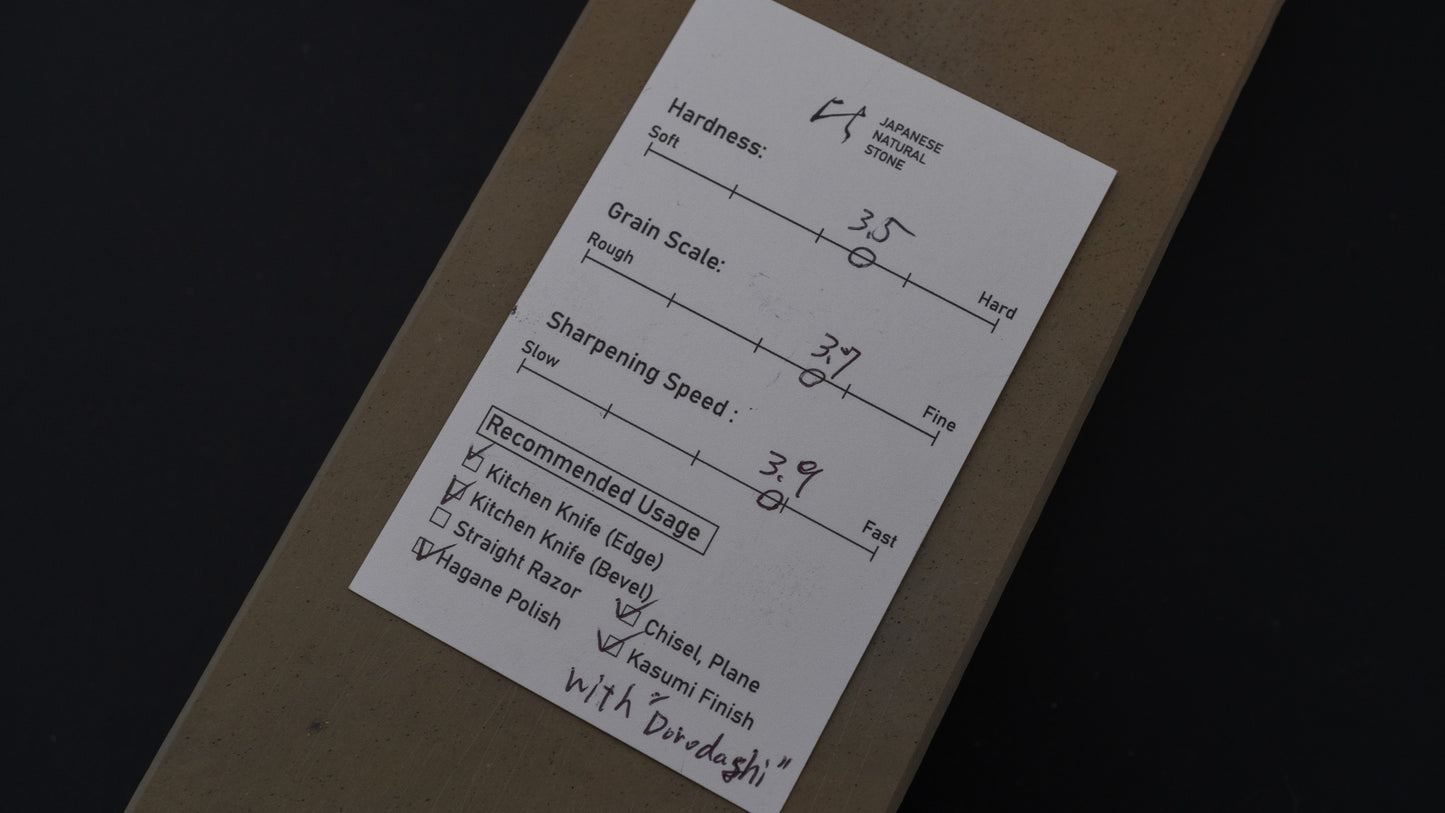 JAPANESE
NATURAL
STONE
Hardness:
Soft
3.5
Hard
Grain Scale:
Rough
3.7
Fine
Sharpening Speed :
Slow
3.9
Fast
Recommended Usage
Kitchen Knife (Edge)
Kitchen Knife (Bevel)
Straight Razor
Hagane Polish
Chisel, Plane
Kasumi Finish
with "Dorodashi"